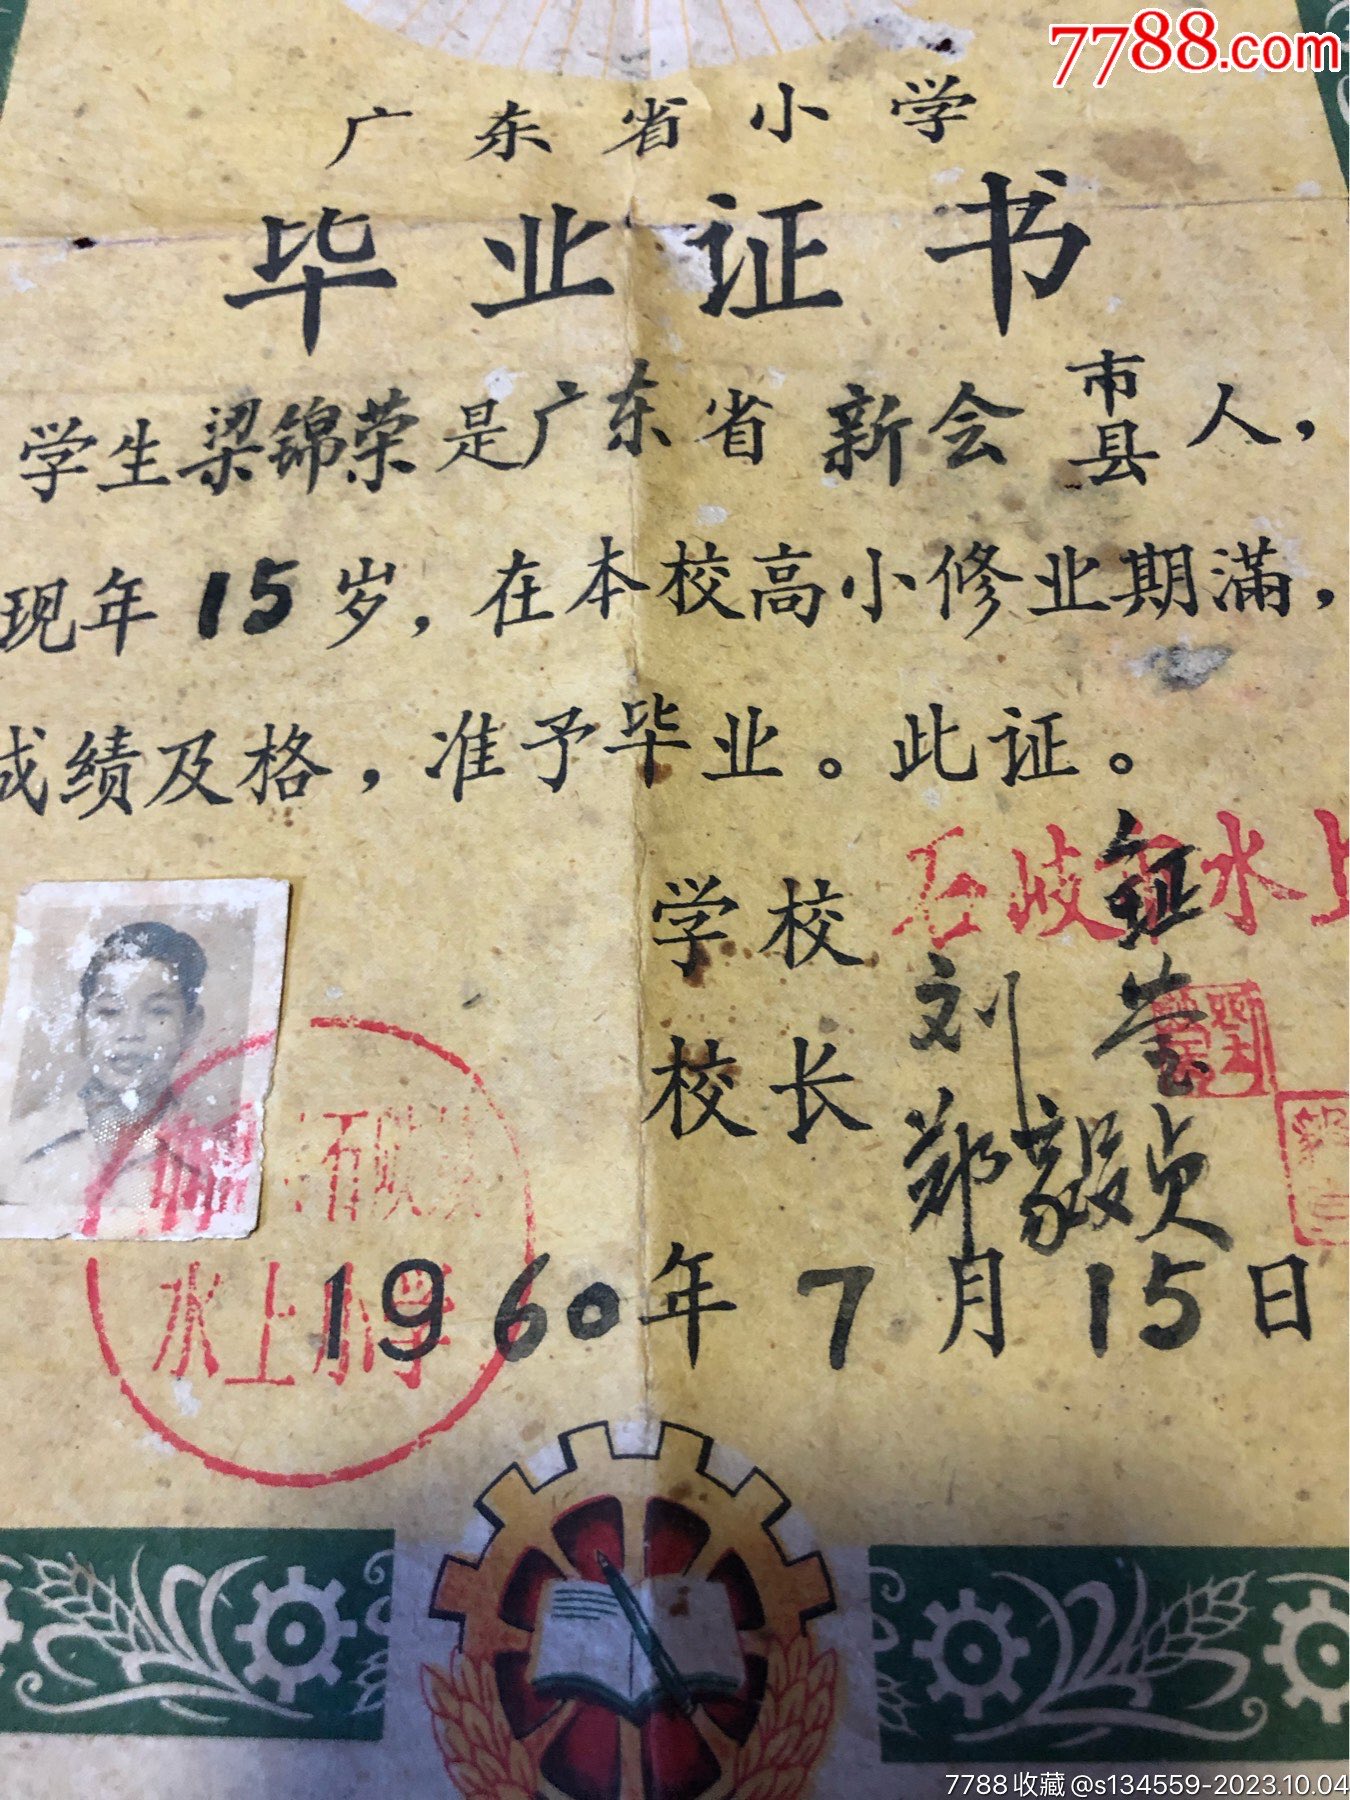 7788.com
广东省小学
毕业证书
学生梁锦荣是广东省新会市县人，
现年15岁，在本校高小修业期满，
成绩及格，准予毕业。此证。
学校 石岐镇水上
校长 刘莹
郑毅贞
石岐镇
水上小学
1960年7月15日
7788收藏@s134559-2023.10.04